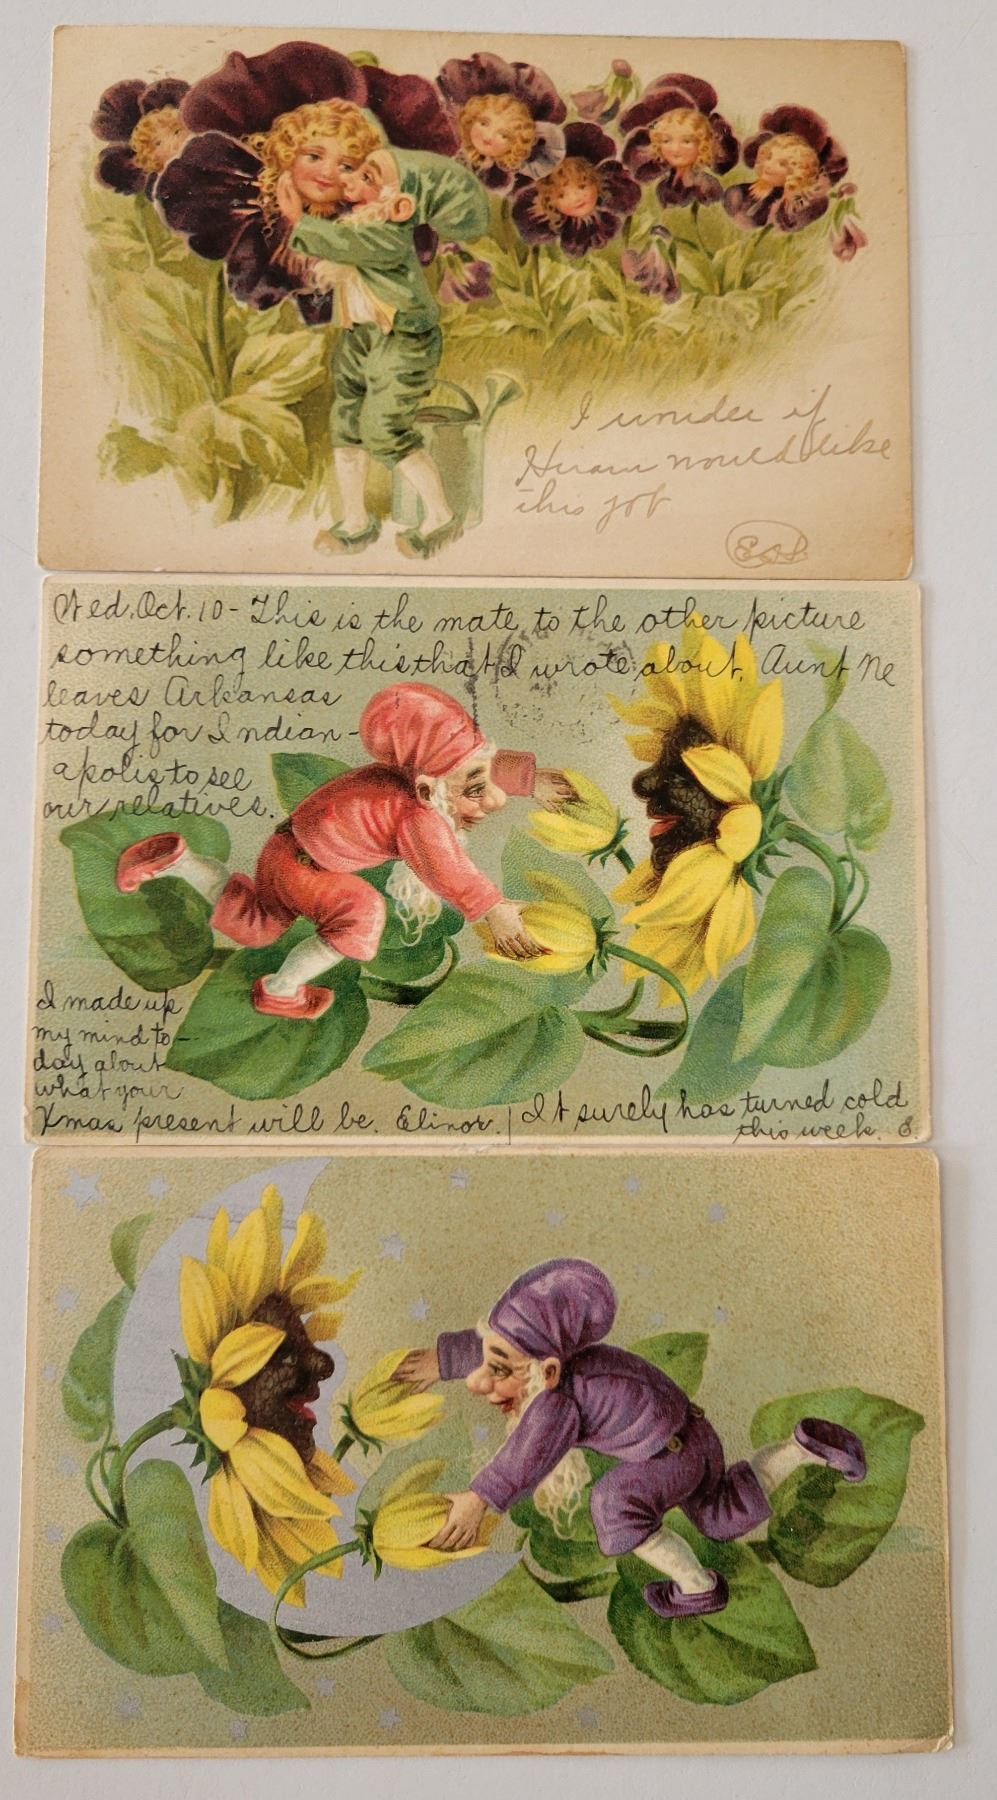 I wonder if
Hiram would like
this job
ESL
Wed. Oct. 10 - This is the mate to the other picture
something like this that I wrote about. Aunt Ne
leaves Arkansas
today for Indian-
apolis to see
our relatives.
I made up
my mind to-
day about
what your
Xmas present will be. Elinor. | It surely has turned cold
this week. E.